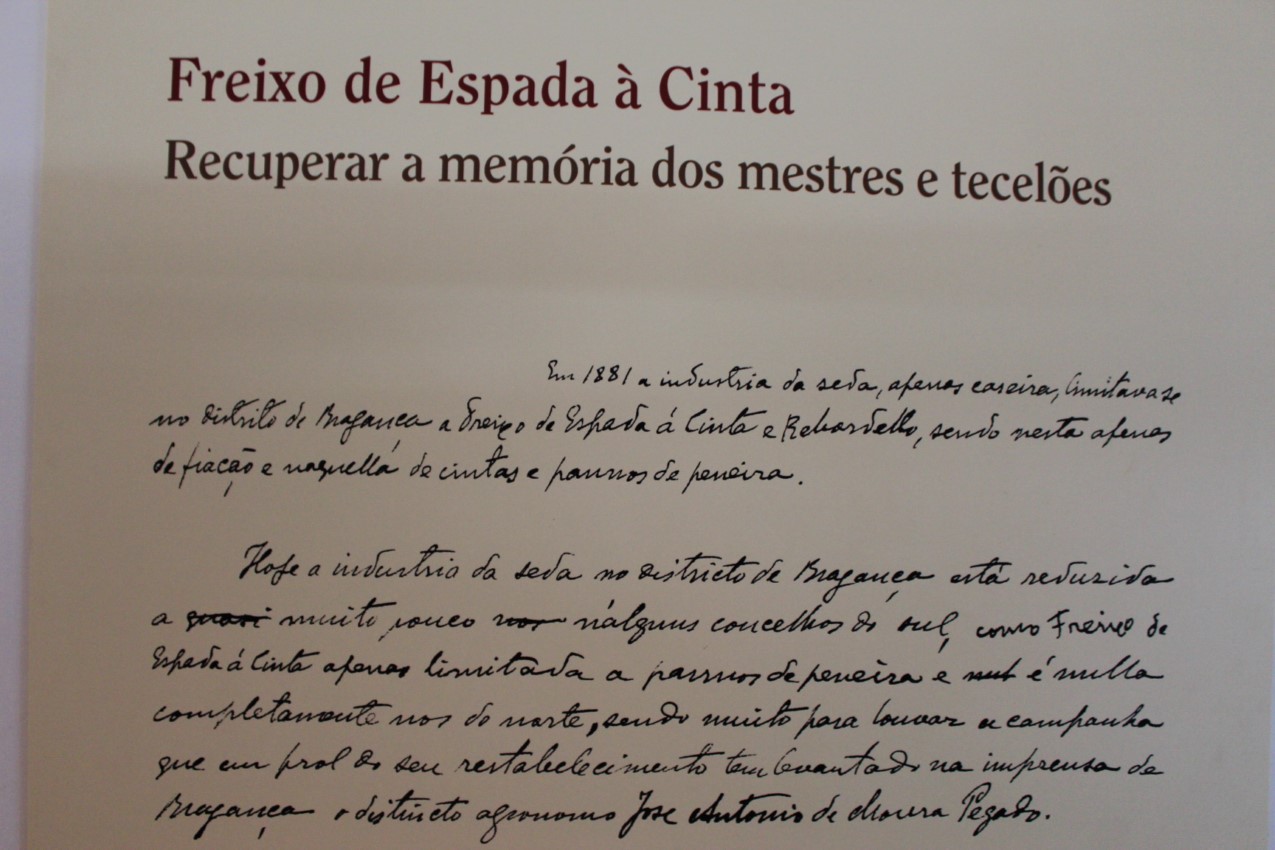 Freixo de Espada à Cinta
Recuperar a memória dos mestres e tecelões
Em 1881 a industria da seda, apenas caseira, limitava se
no distrito de Bragança a Freixo de Espada á Cinta e Rebordello, sendo nesta apenas
de fiação e naquella de cintas e pannos de peneira.
Hoje a industria da seda no districto de Bragança está reduzida
a quasi muito pouco nos n'alguns concelhos do sul, como Freixo de
Espada á Cinta apenas limitada a pannos de peneira e nul é nulla
completamente nos do norte, sendo muito para louvar a campanha
que em prol do seu restabelecimento tem levantado na imprensa de
Bragança o distincto agronomo José Antonio de Moura Pegado.